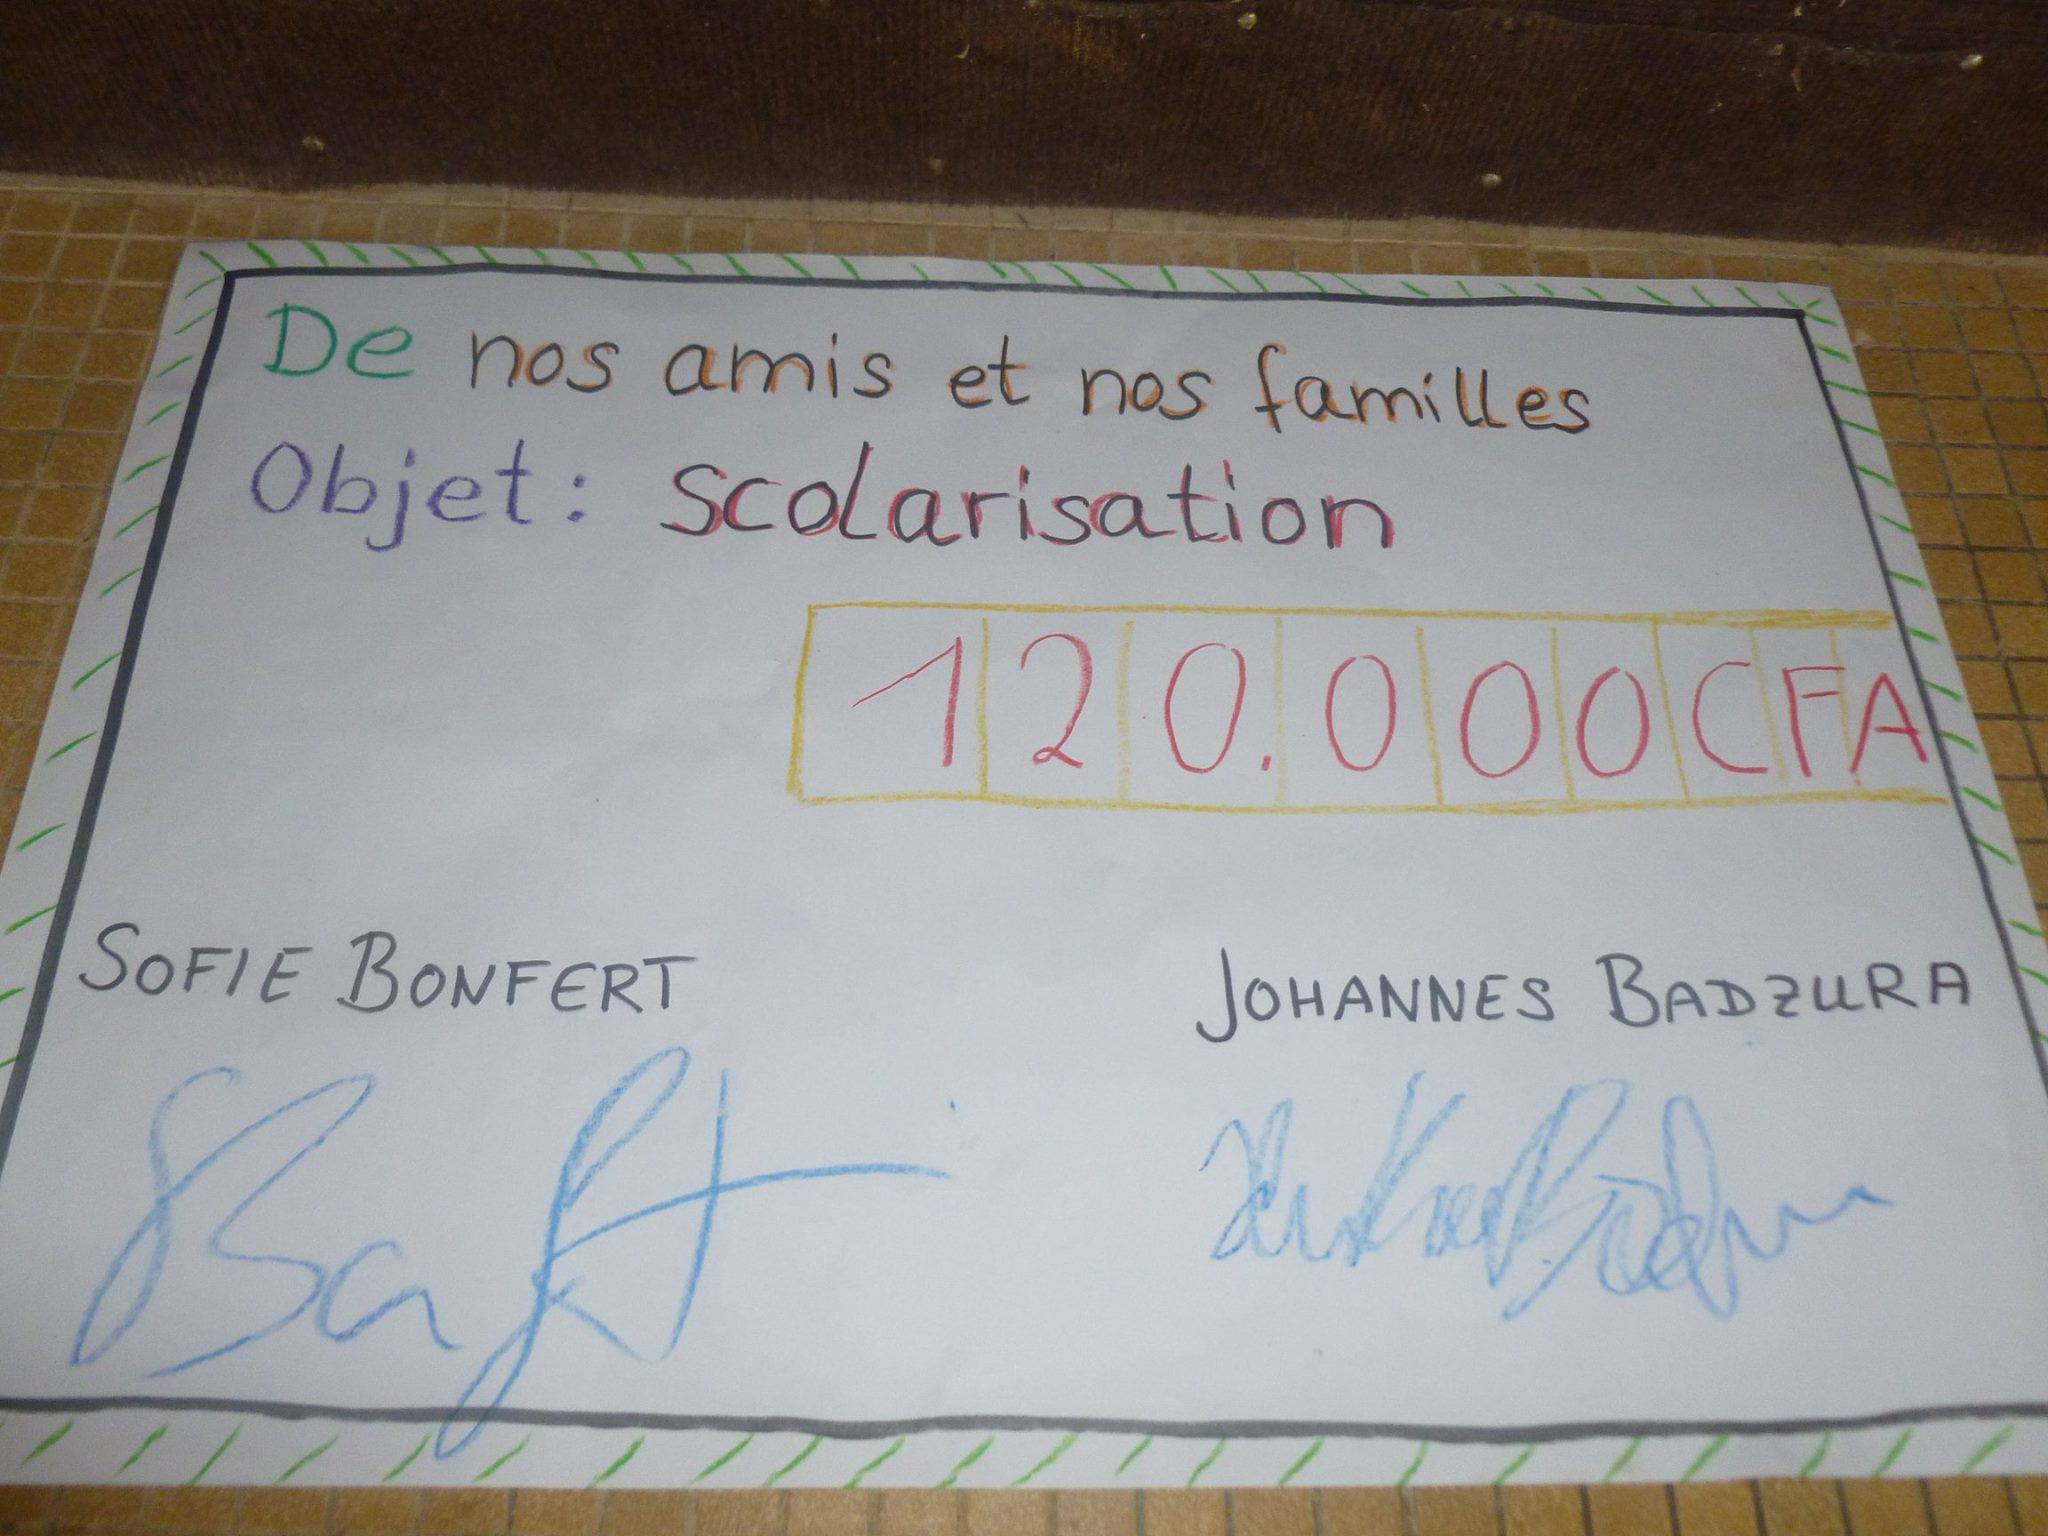 De nos amis et nos familles
Objet: Scolarisation
120.000CFA
SOFIE BONFERT
JOHANNES BADZURA